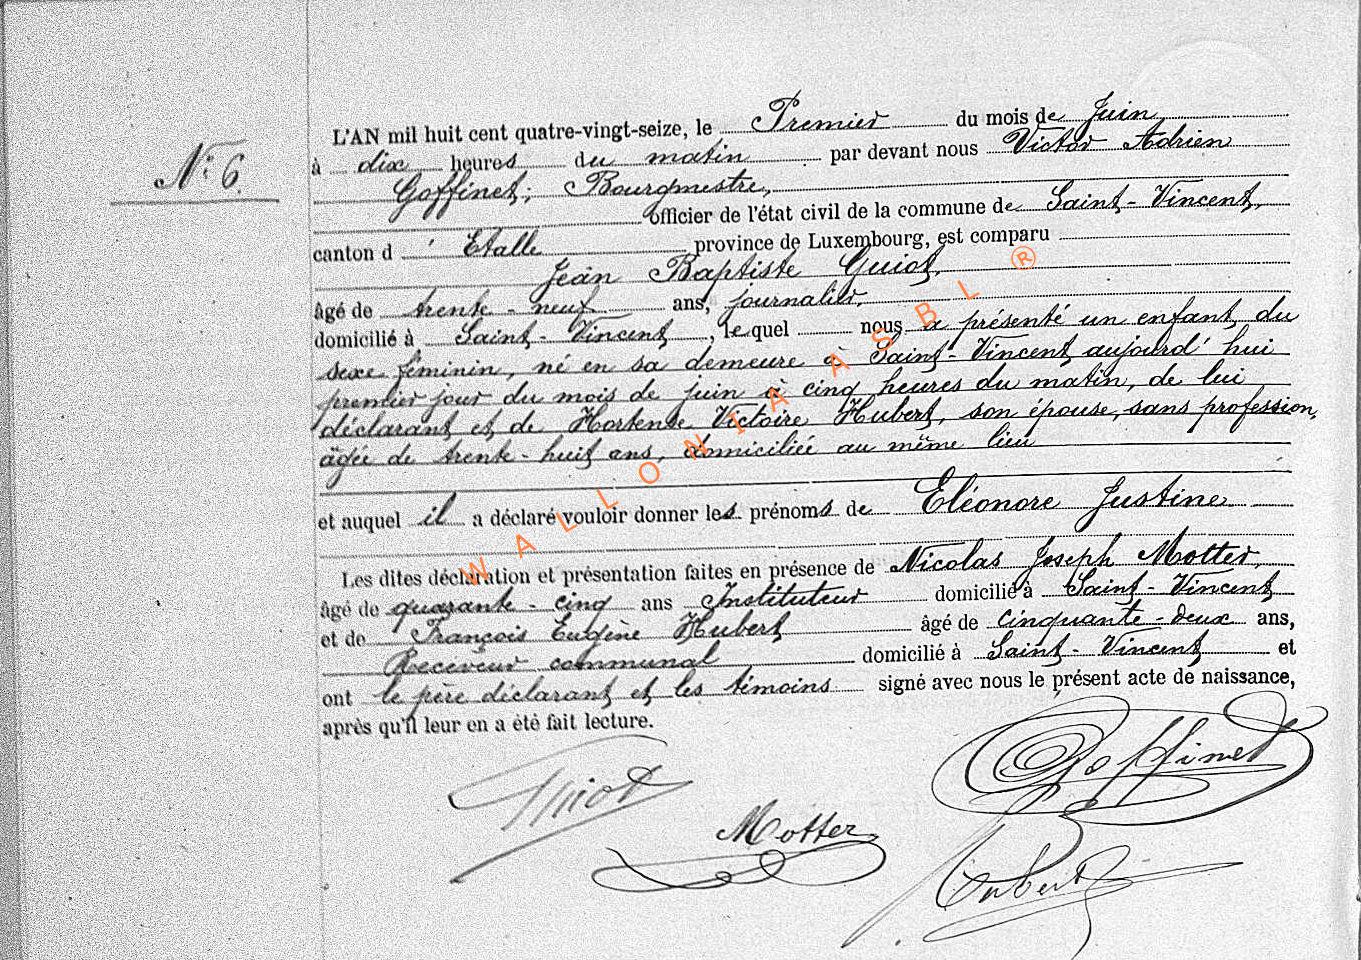 N° 6.
L'AN mil huit cent quatre-vingt-seize, le Premier du mois de Juin
à dix heures du matin par devant nous Victor Adrien
Goffinet, Bourgmestre,
officier de l'état civil de la commune de Saint-Vincent,
canton d'Etalle province de Luxembourg, est comparu
Jean Baptiste Guiot,
âgé de trente-neuf ans, journalier,
domicilié à Saint-Vincent, lequel nous a présenté un enfant du
sexe féminin, né en sa demeure à Saint-Vincent aujourd'hui
premier jour du mois de juin à cinq heures du matin, de lui
déclarant et de Hortense Victoire Hubert, son épouse, sans profession,
âgée de trente-huit ans, domiciliée au même lieu
et auquel il a déclaré vouloir donner les prénoms de Eléonore Justine
Les dites déclaration et présentation faites en présence de Nicolas Joseph Motter,
âgé de quarante-cinq ans Instituteur domicilié à Saint-Vincent
et de François Eugène Hubert âgé de cinquante-deux ans,
Receveur communal domicilié à Saint-Vincent et
ont le père déclarant et les témoins signé avec nous le présent acte de naissance,
après qu'il leur en a été fait lecture.
Guiot
Goffinet
Motter
Hubert
WALLONIA ASBL ®